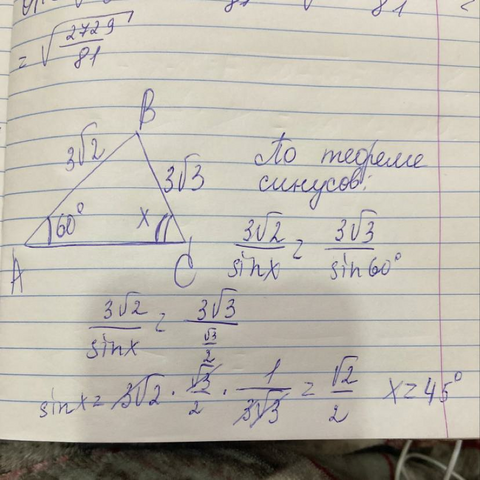 = √(2729/81)
B
3√2
3√3
60°
x
A
C
По теореме
синусов:
3√2/sinx = 3√3/sin60°
3√2/sinx = 3√3/(√3/2)
sinx = 3√2 · √3/2 · 1/(3√3) = √2/2 x = 45°